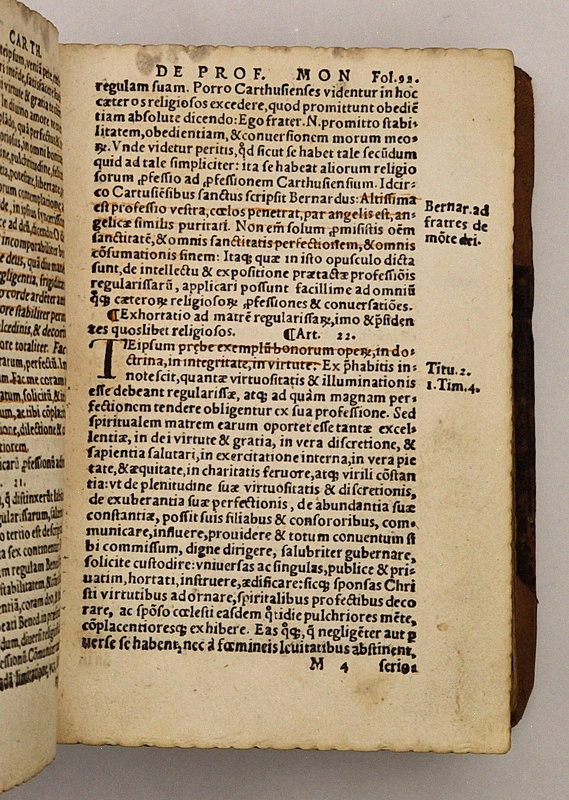 CARTH.
DE PROF. MON Fol. 92.
regulam suam. Porro Carthusienses videntur in hoc
cæteros religiosos excedere, quod promittunt obediē
tiam absolute dicendo: Ego frater. N. promitto stabi-
litatem, obedientiam, & conuersionem morum meo-
ꝝ. Vnde videtur peritis, ꝙd sicut se habet tale secūdum
quid ad tale simpliciter: ita se habeat aliorum religio
sorum ꝓfessio ad ꝓfessionem Carthusiensium. Idcir-
co Cartusiēsibus sanctus scripsit Bernardus: Altissima
est professio vestra, cœlos penetrat, par angelis est, an-
gelicæ similis puritati. Non em̄ solum ꝓmisistis oēm
sanctitatē, & omnis sanctitatis perfectionem, & omnis
cōsumationis finem: Itaqꝫ quæ in isto opusculo dicta
sunt, de intellectu & expositione prætactæ professiōis
regularissarū, applicari possunt facillime ad omniū
qꝫ cæteroꝝ religiosoꝝ ꝓfessiones & conuersatiōes.
¶Exhortatio ad matrē regularissaꝝ, imo & p̄siden
tes quoslibet religiosos. ¶Art. 22.
TEipsum prębe exemplū bonorum operꝫ, in do-
ctrina, in integritate, in virtute. Ex p̄habitis in-
notescit, quantæ virtuositatis & illuminationis
esse debeant regularissæ, atqꝫ ad quàm magnam per-
fectionem tendere obligentur ex sua professione. Sed
spiritualem matrem earum oportet esse tantæ excel-
lentiæ, in dei virtute & gratia, in vera discretione, &
sapientia salutari, in exercitatione interna, in vera pie
tate, & æquitate, in charitatis feruore, atqꝫ virili cōstan
tia: vt de plenitudine suæ virtuositatis & discretionis,
de exuberantia suæ perfectionis, de abundantia suæ
constantiæ, possit suis filiabus & consororibus, com-
municare, influere, prouidere & totum conuentum si
bi commissum, digne dirigere, salubriter gubernare,
solicite custodire: vniuersas ac singulas, publice & pri-
uatim, hortati, instruere, ædificare: sicqꝫ sponsas Chri
sti virtutibus adornare, spiritalibus profectibus deco
rare, ac spōso cœlesti easdem q̄tidie pulchriores mēte,
cōplacentioresqꝫ exhibere. Eas qꝫqꝫ, q̄ negligēter aut ꝑ
uerse se habent, nec à fœmineis leuitatibus abstinent,
M 4 serio
Bernar. ad
fratres de
mōte dei.
Titu. 2.
1. Tim. 4.